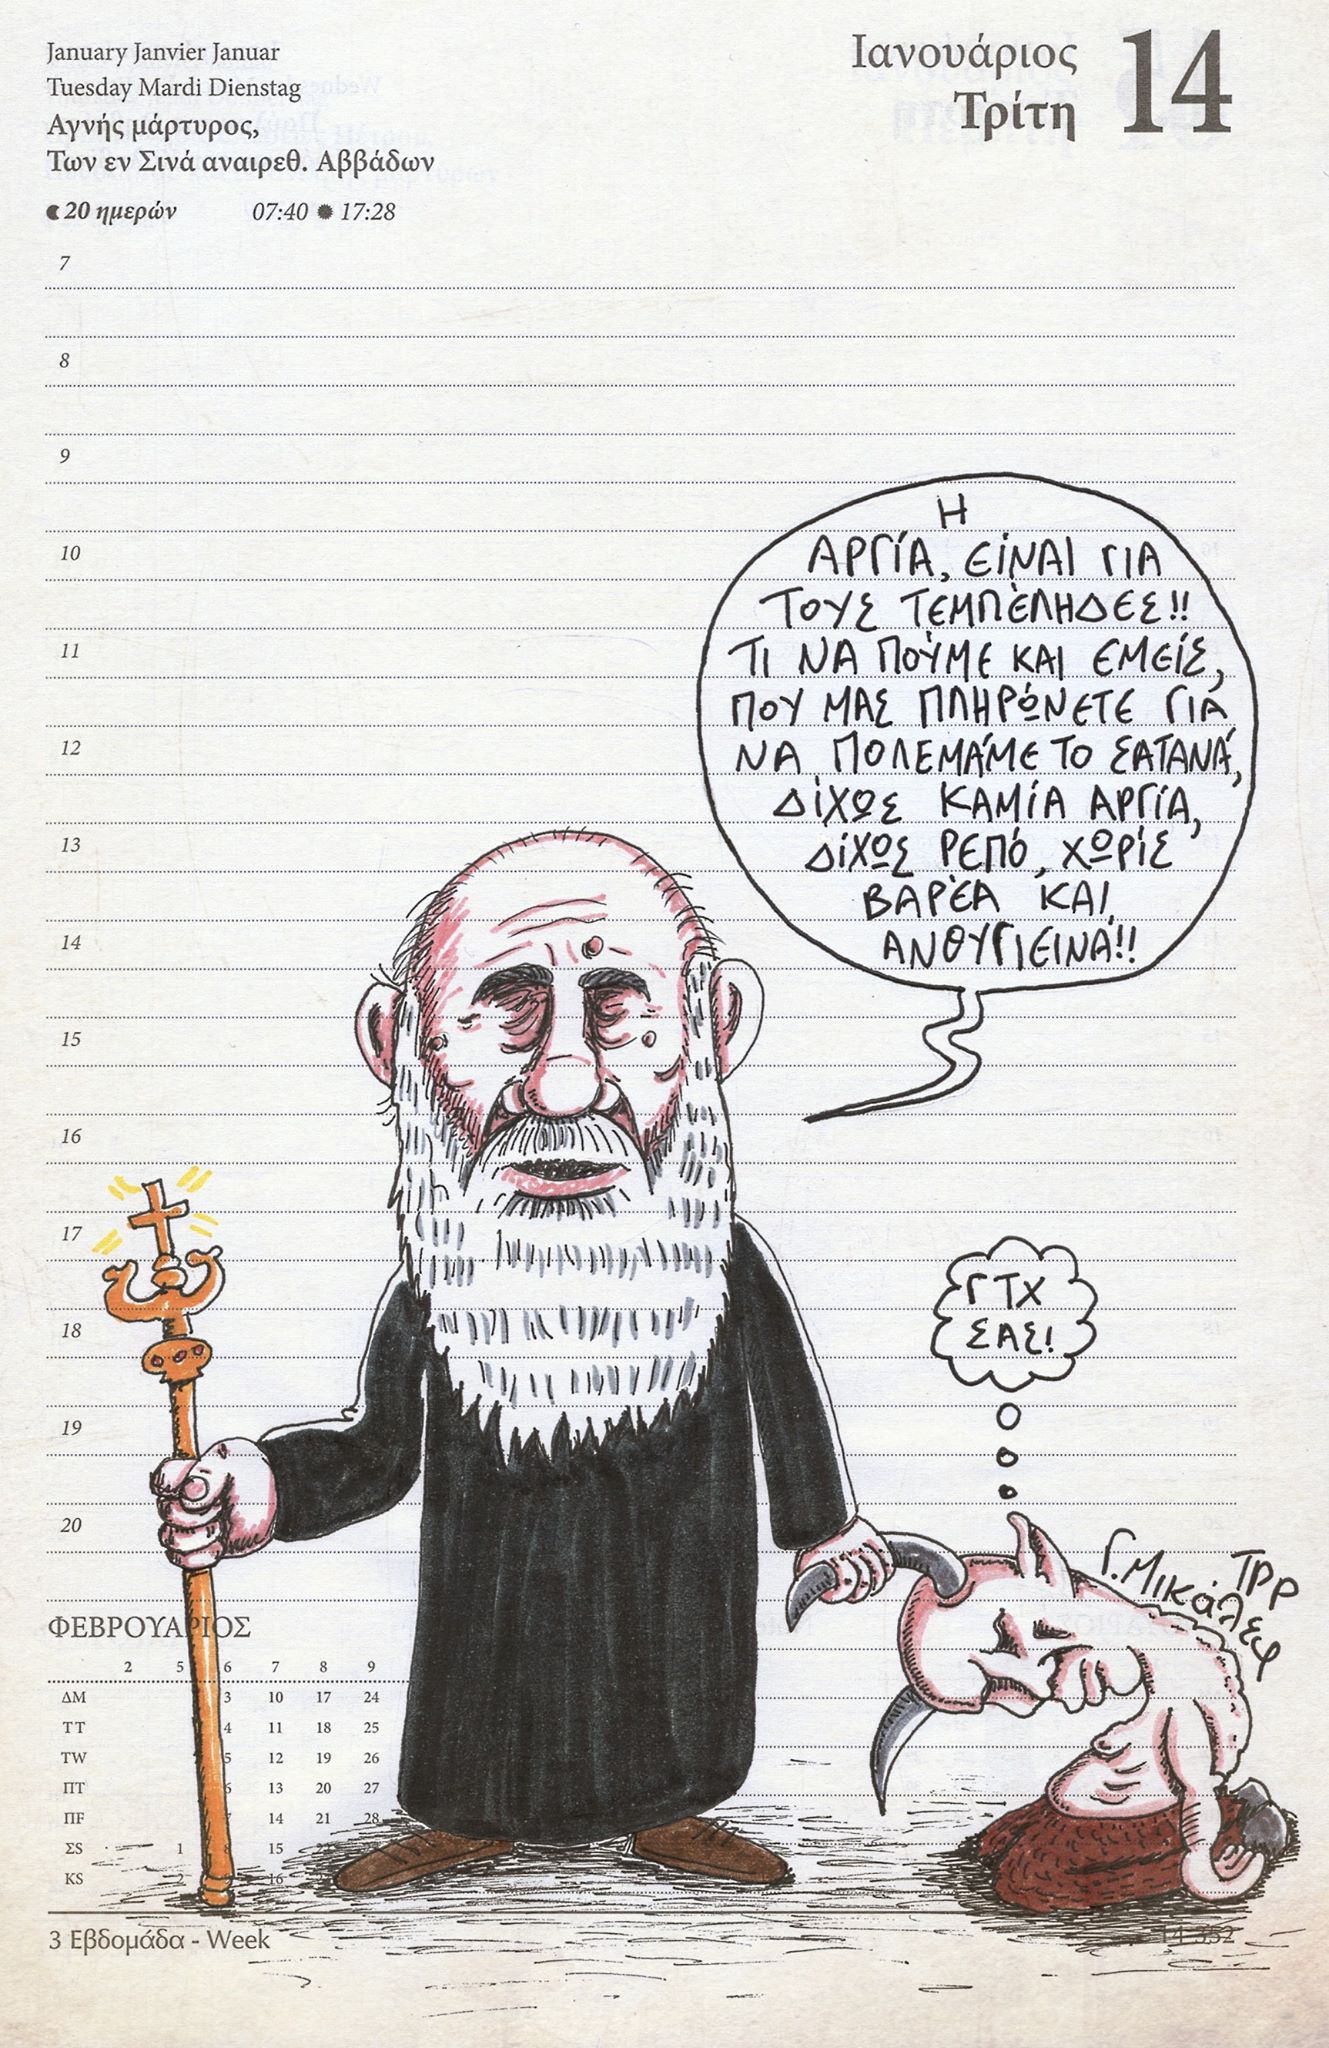 January Janvier Januar
Tuesday Mardi Dienstag
Αγνής μάρτυρος,
Των εν Σινά αναιρεθ. Αββάδων
20 ημερών 07:40 17:28
Ιανουάριος
Τρίτη
14
7
8
9
10
11
12
13
14
15
16
17
18
19
20
Η
ΑΡΓΊΑ, ΕΊΝΑΙ ΓΙΑ
ΤΟΥΣ ΤΕΜΠΈΛΗΔΕΣ!!
ΤΙ ΝΑ ΠΟΎΜΕ ΚΑΙ ΕΜΕΊΣ,
ΠΟΥ ΜΑΣ ΠΛΗΡΏΝΕΤΕ ΓΙΑ
ΝΑ ΠΟΛΕΜΆΜΕ ΤΟ ΣΑΤΑΝΆ,
ΔΊΧΩΣ ΚΑΜΊΑ ΑΡΓΊΑ,
ΔΊΧΩΣ ΡΕΠΌ, ΧΩΡΊΣ
ΒΑΡΈΑ ΚΑΙ
ΑΝΘΥΓΙΕΙΝΆ!!
ΓΤΧ
ΣΑΣ!
Γ. Μικάλεφ
ΤΡΡ
ΦΕΒΡΟΥΑΡΙΟΣ
2 5 6 7 8 9
ΔM 3 10 17 24
ΤT 4 11 18 25
ΤW 5 12 19 26
ΠT 6 13 20 27
ΠF 14 21 28
ΣS 1 15
ΚS 2 16
3 Εβδομάδα - Week
14-352